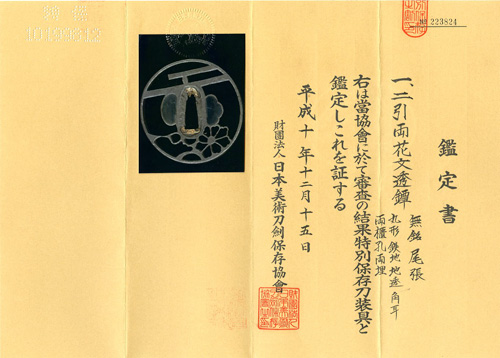 鑑定書
No 223824
一、二引両花文透鐔
無銘 尾張
丸形 鉄地 地透 角耳
両櫃孔両埋
右は當協會に於て審査の結果特別保存刀装具と
鑑定しこれを証する
平成十年十二月十五日
財團法人 日本美術刀劍保存協會